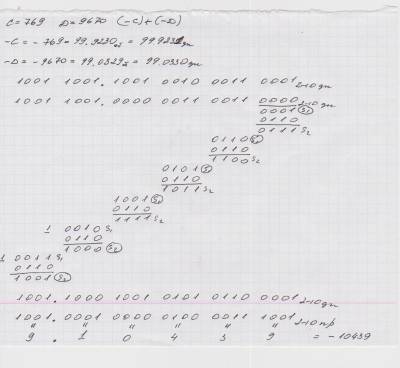 C=769 D=9670 (-C)+(-D)
-C = -769 = 99.9230ок = 99.9231дк
-D = -9670 = 99.0329ок = 99.0330дк
1001 1001. 1001 0010 0011 0001 2-10дк
1001 1001. 0000 0011 0011 0000 2-10дк
0001 S1
0110
0111 S2
0110 S1
0110
1100 S2
0101 S1
0110
1011 S2
1001 S1
0110
1111 S2
1 0010 S1
0110
1000 S2
1 0011 S1
0110
1001 S2
1001. 1000 1001 0101 0110 0001 2-10дк
1001. 0001 0000 0100 0011 1001 2-10пр
" " " " " "
9 . 1 0 4 3 9 = -10439